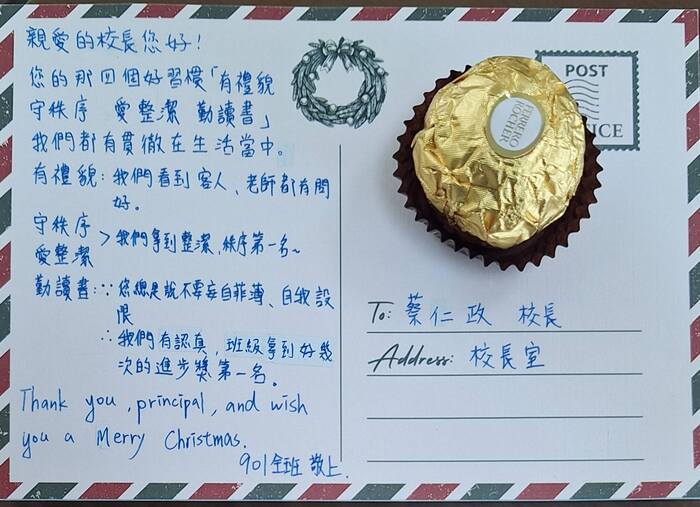 親愛的校長您好!
您的那四個好習慣「有禮貌
守秩序 愛整潔 勤讀書」
我們都有貫徹在生活當中。
有禮貌:我們看到客人、老師都有問
好。
守秩序
愛整潔 > 我們拿到整潔,秩序第一名~
勤讀書:∵您總是說不要妄自菲薄、自我設
限
∴我們有認真,班級拿到好幾
次的進步獎第一名。
Thank you, principal, and wish
you a Merry Christmas.
901全班 敬上.
POST
ICE
FERRERO
ROCHER
To: 蔡仁政 校長
Address: 校長室